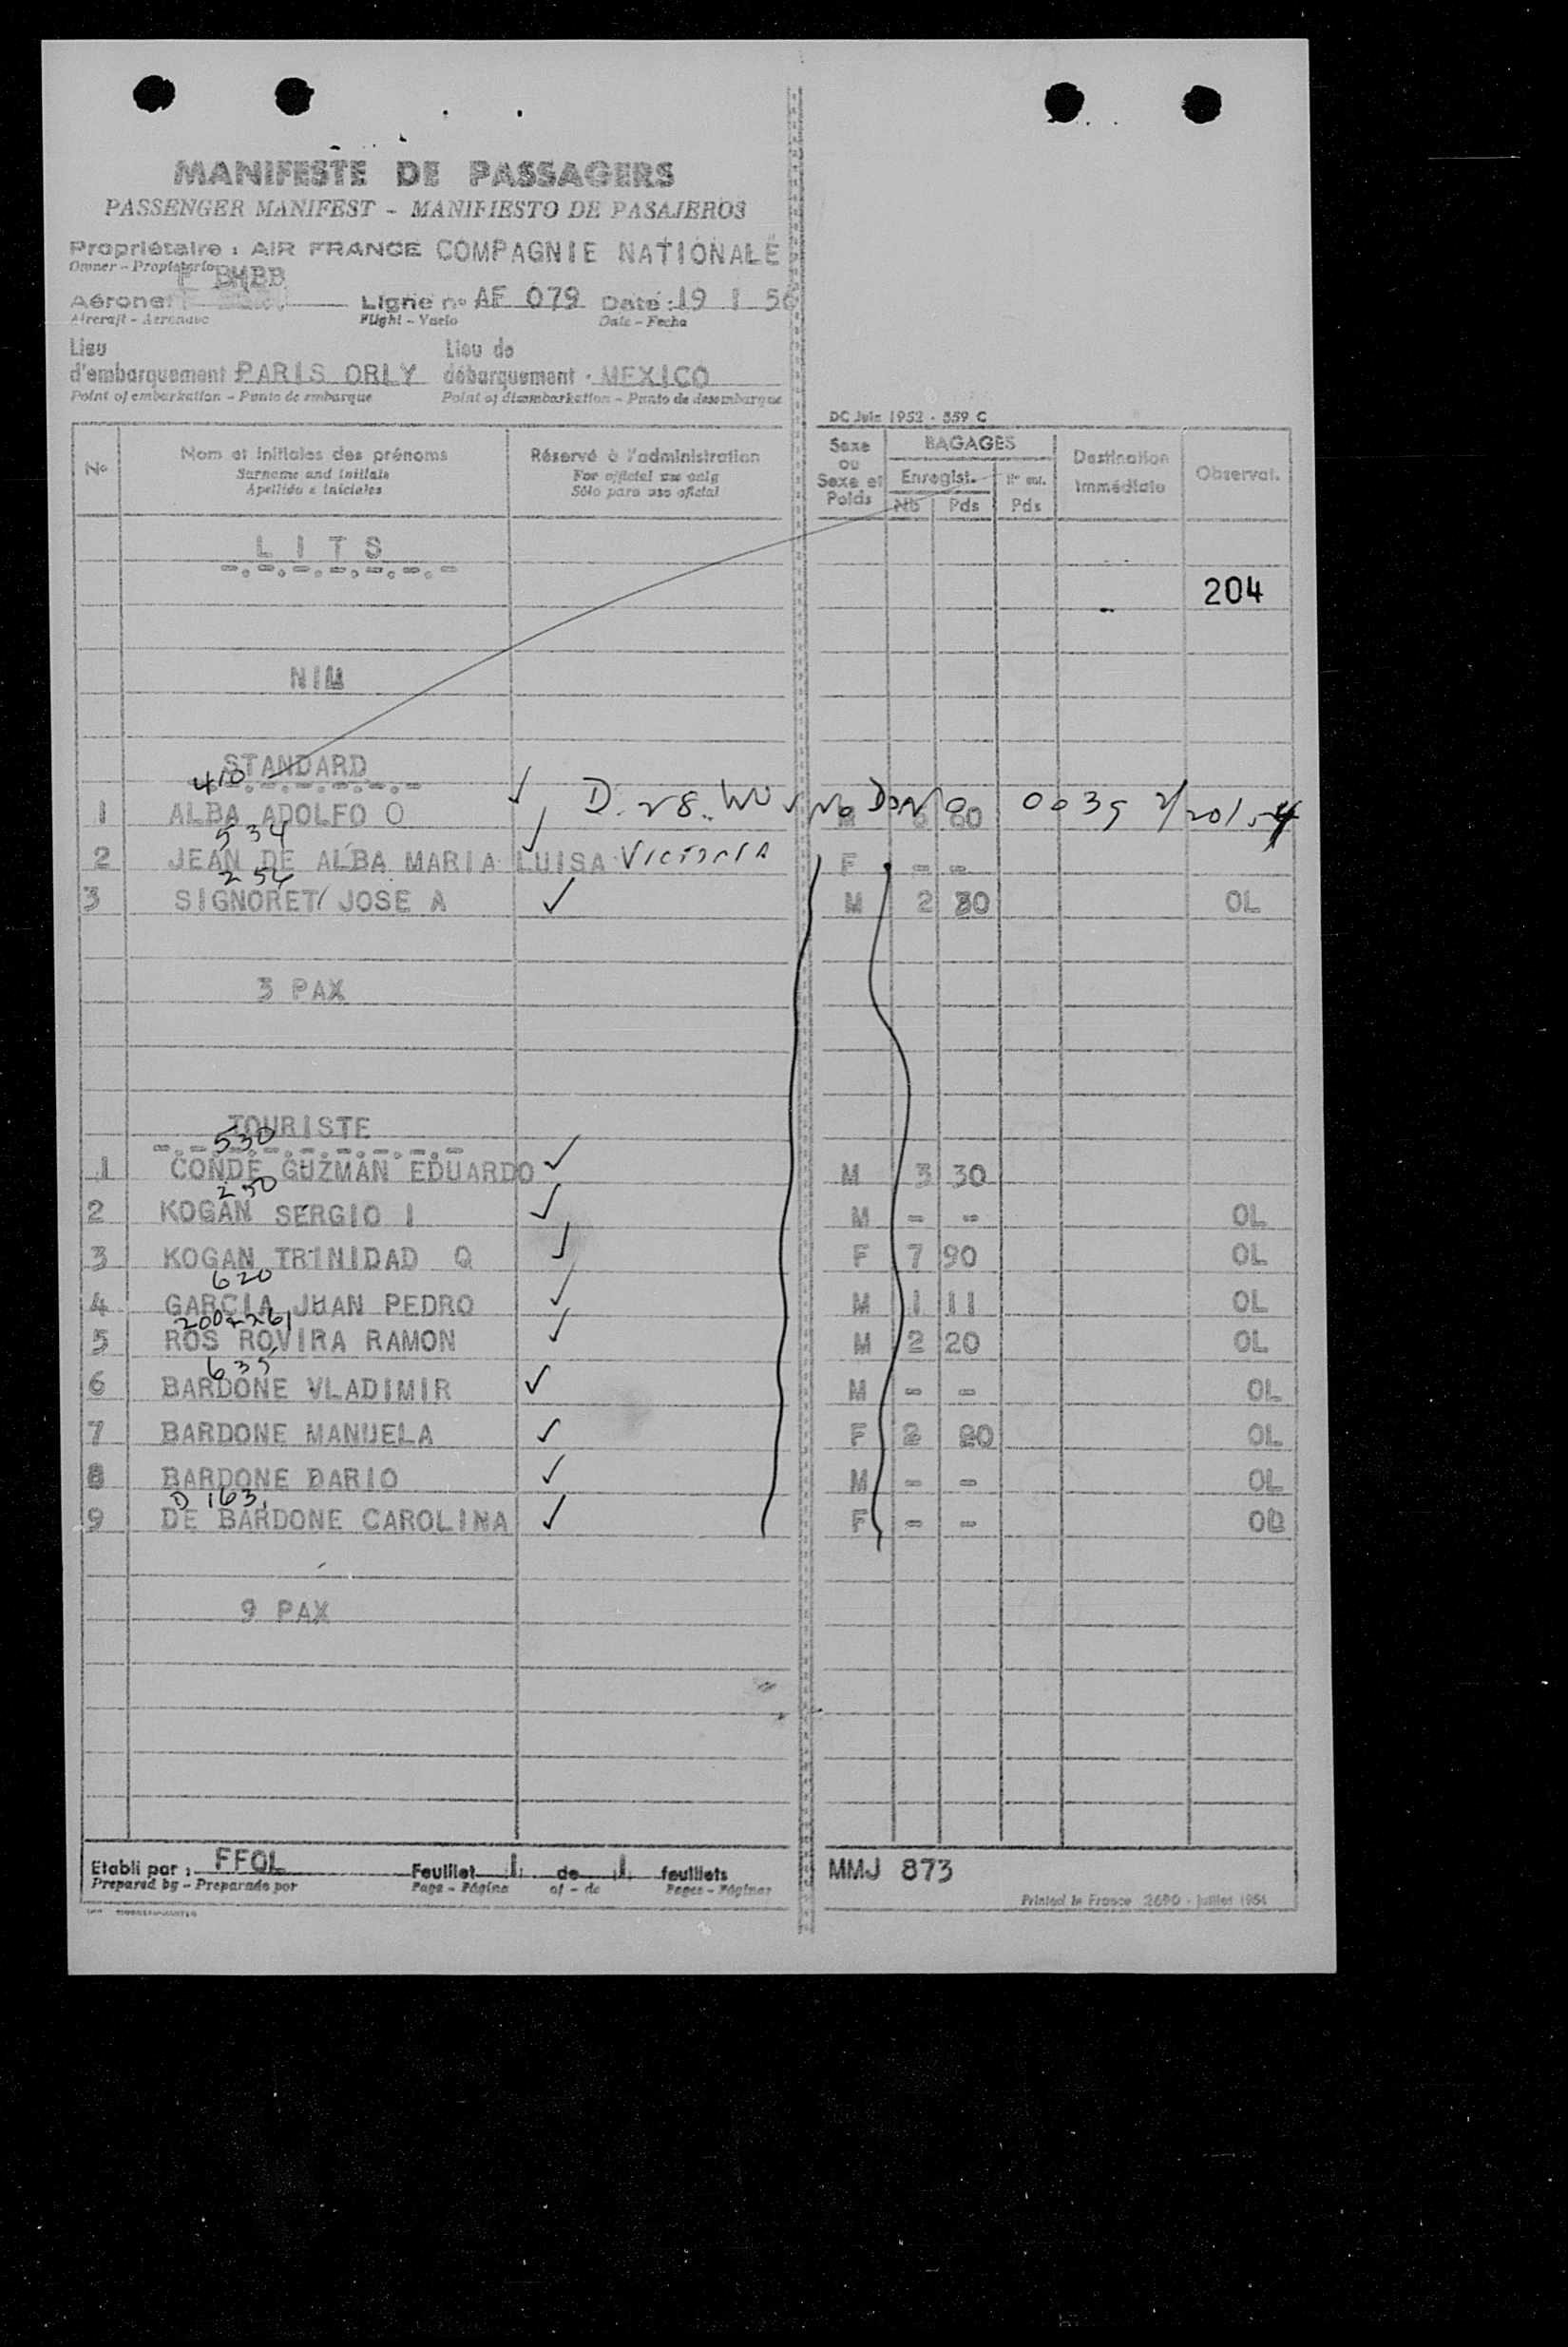 MANIFESTE DE PASSAGERS
PASSENGER MANIFEST - MANIFIESTO DE PASAJEROS
Propriétaire : AIR FRANCE COMPAGNIE NATIONALE
Owner - Propietario
F BHBB
Aéronef Ligne no AF 079 Date : 19 1 56
Aircraft - Aeronave Flight - Vuelo Date - Fecha
Lieu Lieu de
d'embarquement PARIS ORLY débarquement - MEXICO
Point of embarkation - Punto de embarque Point of disembarkation - Punto de desembarque
DC Juin 1952 - 559 C
No Nom et initiales des prénoms Réservé à l'administration Sexe ou Sexe et Poids BAGAGES Destination Immédiate Observat.
Surname and initials For official use only Enregist. Nb Pds Pds
Apellido e iniciales Sólo para uso oficial
LITS
204
NIL
STANDARD
410
1 ALBA ADOLFO O D. 28. M 60 0039 2/20/54
534
2 JEAN DE ALBA MARIA LUISA VICTORIA F - -
254
3 SIGNORET JOSE A M 2 30 OL
3 PAX
TOURISTE
530
1 CONDE GUZMAN EDUARDO M 3 30
250
2 KOGAN SERGIO I M - - OL
3 KOGAN TRINIDAD Q F 7 90 OL
620
4 GARCIA JUAN PEDRO M 1 11 OL
5 ROS ROVIRA RAMON M 2 20 OL
635
6 BARDONE VLADIMIR M - - OL
7 BARDONE MANUELA F 2 20 OL
8 BARDONE DARIO M - - OL
D 163
9 DE BARDONE CAROLINA F - - OL
9 PAX
Etabli par : FFOL Feuillet 1 de 1 feuillets MMJ 873
Prepared by - Preparado por Page - Página of - de Pages - Páginas
Printed in France 2690 - Juillet 1954